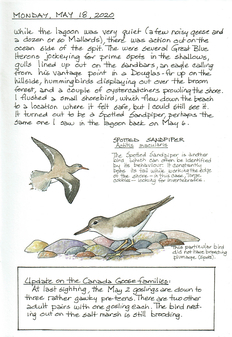 MONDAY, MAY 18, 2020
While the lagoon was very quiet (a few noisy geese and
a dozen or so Mallards), there was action out on the
ocean side of the spit. There were several Great Blue
Herons jockeying for prime spots in the shallows,
gulls lined up on the sandbars, an eagle calling
from his vantage point in a Douglas-fir up on the
hillside, hummingbirds displaying out over the broom
forest, and a couple of oystercatchers prowling the shore.
I flushed a small shorebird, which flew down the beach
to a location where it felt safe, but I could still see it.
It turned out to be a Spotted Sandpiper, perhaps the
same one I saw in the lagoon back on May 6.
SPOTTED SANDPIPER
Actitis macularia
The Spotted Sandpiper is another
bird which can often be identified
by its behaviour. It constantly
bobs its tail while working the edge
of the shore - in this case, large
cobbles - looking for invertebrates.
This particular bird
did not have breeding
plumage (spots).
Update on the Canada Goose families:
At last sighting, the May 2 goslings are down to
three rather gawky preteens. There are two other
adult pairs with one gosling each. The bird nest-
ing out on the salt marsh is still brooding.